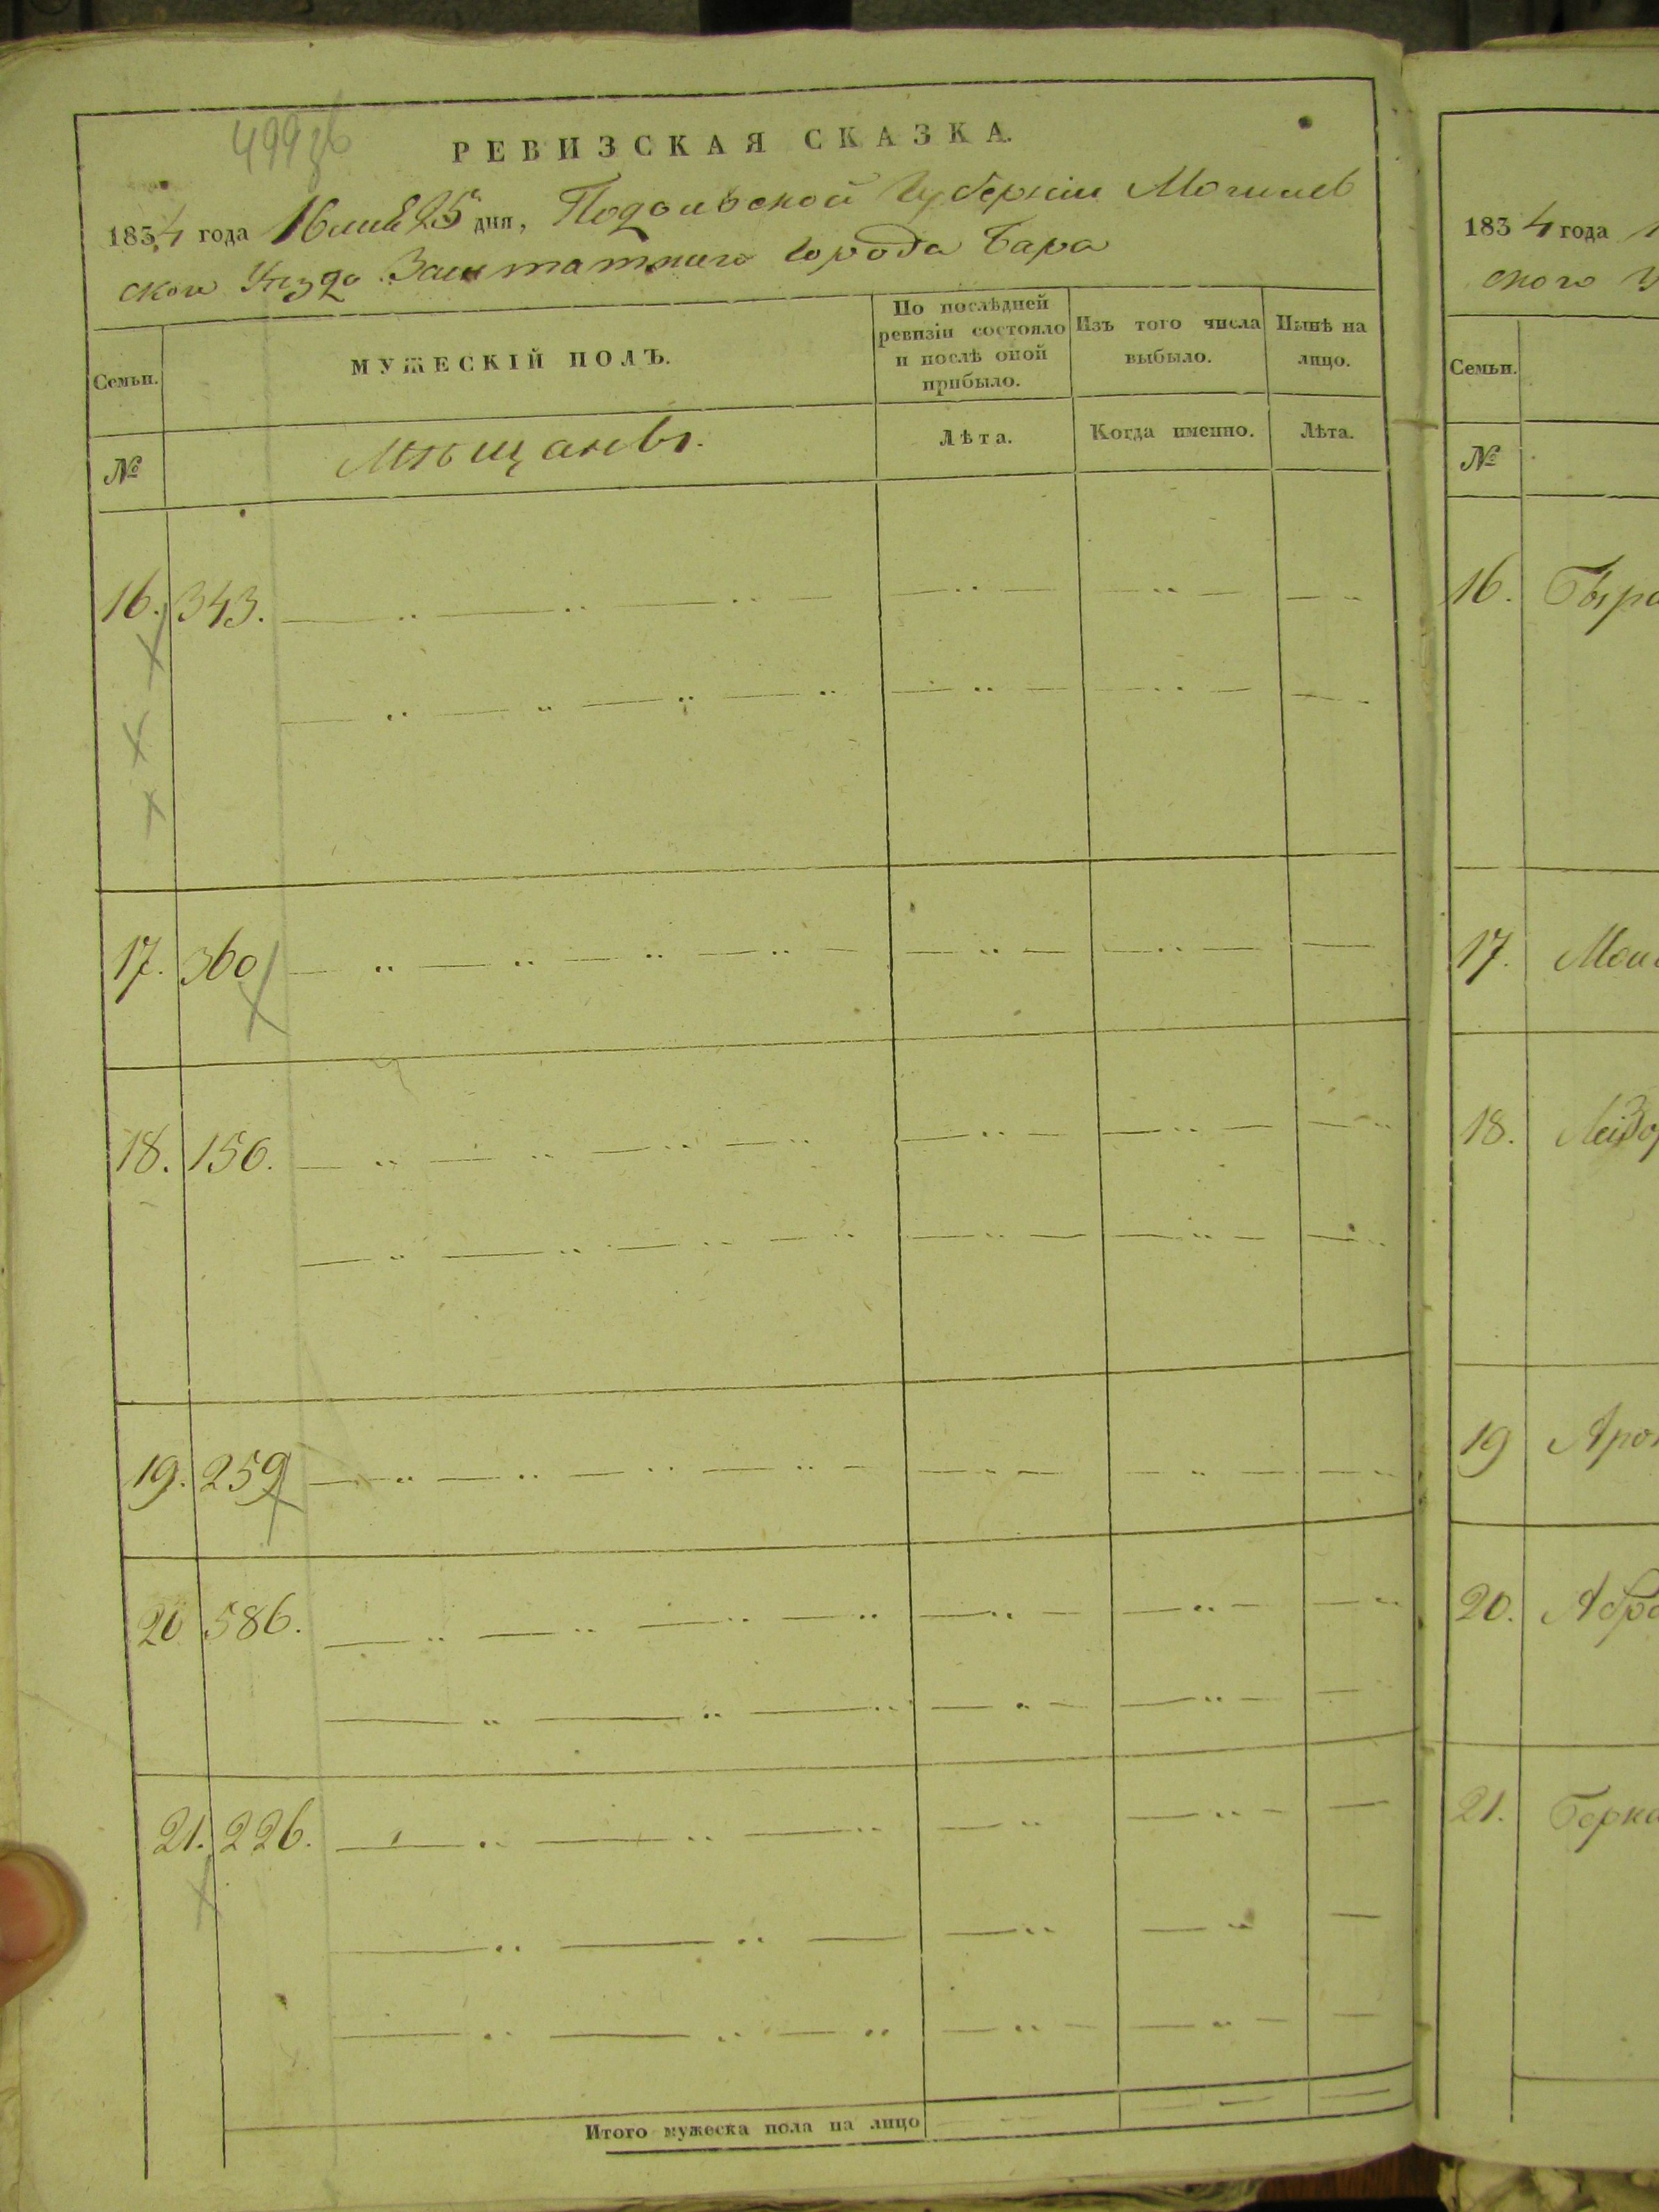 499 зв
РЕВИЗСКАЯ СКАЗКА.
1834 года 25 дня, Подольской Губернии Могилев
ского Уезда Заштатного города Бара
Семьи.
МУЖЕСКІЙ ПОЛЪ.
По послѣдней ревизіи состояло и послѣ оной прибыло.
Изъ того числа выбыло.
Нынѣ на лицо.
№
Мѣщанѣ.
Лѣта.
Когда именно.
Лѣта.
16. 343.
17. 360
18. 156.
19. 259
20 586.
21. 226.
Итого мужеска пола на лицо
1834 года
ского
Семьи.
№
16.
17.
18.
19
20.
21.